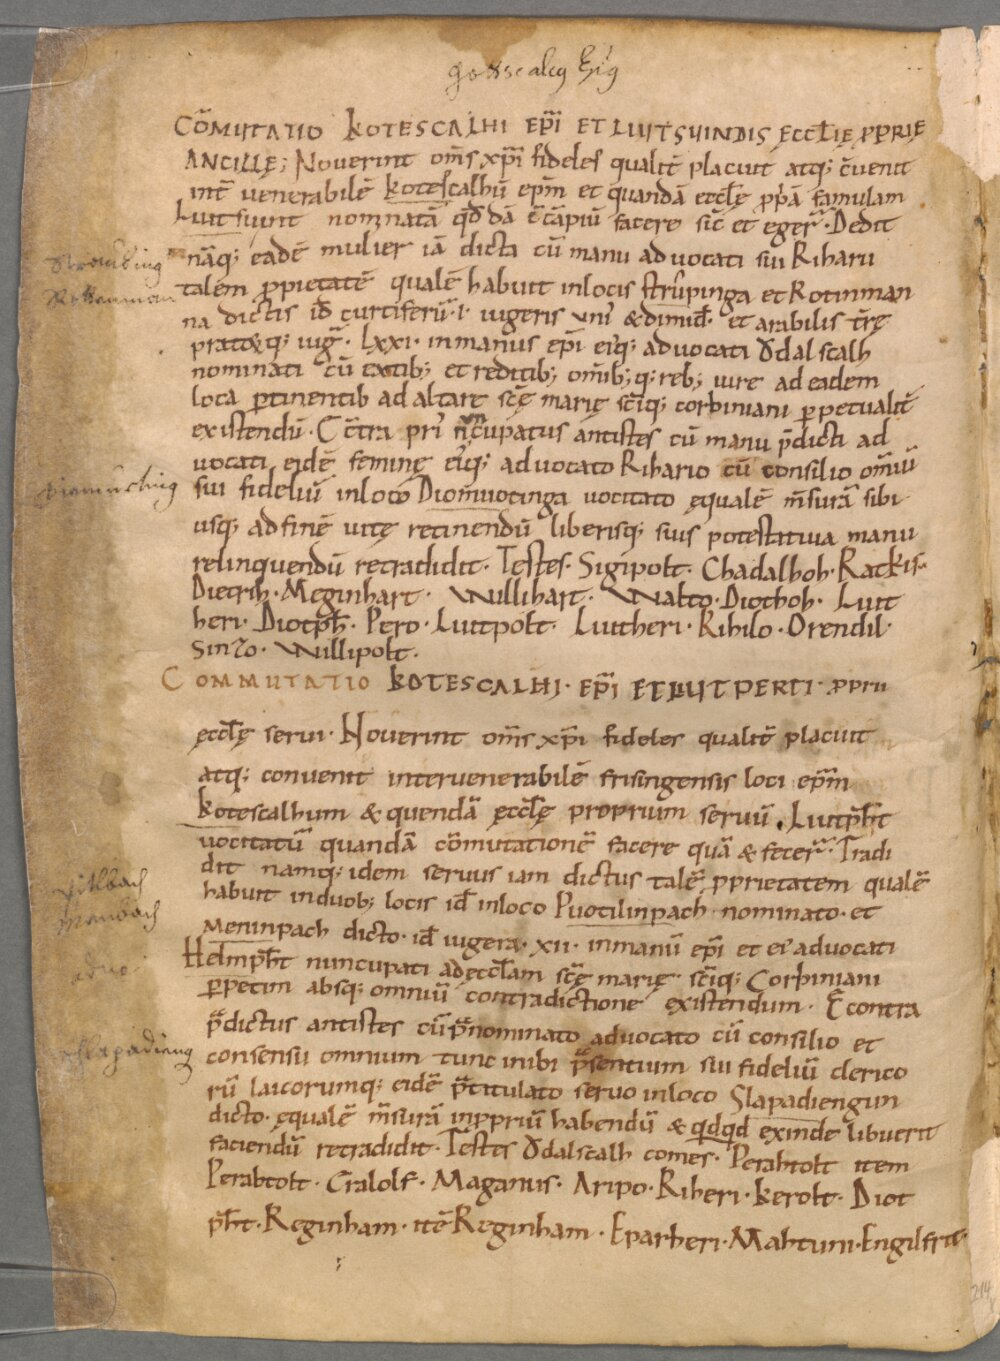 CŌMUTATIO KOTESCALHI EP̄I ET LIUTSUINDIS ĘCCL̄IĘ P̱PRIĘ
ANCILLĘ; Noverint om̅s xp̅i fideles qualit̅ placuit atq; c̅venit
int̅ venerabilē kotescalhū ep̅m et quandā ęccl̅ę p̱pā famulam
Liutsuint nominatā qd̄dā c̄cāpiū facere sic̄ et eger̄. Dedit
nāq; eadē mulier iā dicta cū manu advocati sui Riharii
talem p̱prietatē qualē habuit in locis strupinga et Rotinman
na dictis id̄ curtiferū .I. iugeris uni &dimid̄. et arabilis t̅rę
pratoꝝq; iug̅. Lxxi. in manus ep̅i ei'q; advocati Ǒdalscalh
nominati cū exitib; et reditib; om̄ib;q; reb; iure ad eadem
loca p̱tinentib ad altare sc̅ę marię sc̅iq; corbiniani p̱petualit̅
existendū. Ec̄tra pri' nc̄upatus antistes cū manu p̄dicti ad
vocati eidē feminę ei'q; advocato Rihario cū consilio om̄iū
sui fideliū in loco Diomuotinga vocitato ęqualē m̅surā sibi
usq; ad finē vitę retinendū liberisq; suis potestativa manu
relinquendū retradidit. Testes. Sigipolt. Chadalhoh. Ratkis.
Dietrih. Meginhart. Willihart. Walto. Diothoh. Liut
heri. Diotp̱h̄t. Pero. Liutpolt. Liutheri. Rihilo. Orendil.
Sinzo. Willipolt.
COMMUTATIO KOTESCALHI. EP̄I ET LIUTPERTI. p̱prii
ęccl̅ę servi. Noverint om̅s xp̅i fideles qualit̅ placuit
atq; convenit inter venerabilē frisingensis loci ep̅m
kotescalhum & quendā ęccl̅ę proprium servū. Liutp̱h̄t
vocitatū quandā cōmutationē facere quā & fecer̄. Tradi
dit namq; idem servus iam dictus talē p̱prietatem qualē
habuit in duob; locis id̄ in loco Puotilinpach nominato. et
Meninpach dicto. id̄ iugera. xii. in manū ep̅i et ei' advocati
Helmp̱h̄t nuncupati ad ęccl̅am sc̅ę marię sc̅iq; Corbiniani
p̱petim absq; omniū contradictione existendum. Ēcontra
p̄dictus antistes cū p̄nominato advocato cū consilio et
consensu omnium tunc inibi p̄sentium sui fideliū clerico
rū laicorumq; eidē p̄titulato servo in loco Slapadiengun
dicto. ęqualē m̅surā in p̱priū habendū & qd̄qd̄ exinde libuerit
faciendū retradidit. Testes Ǒdalscalh comes. Perahtolt item
Perahtolt. Cralolf. Maganus. Aripo. Riheri. Kerolt. Diot
p̱h̄t. Reginham. itē Reginham. Eparheri. Mahtuni. Engilfrit.
214